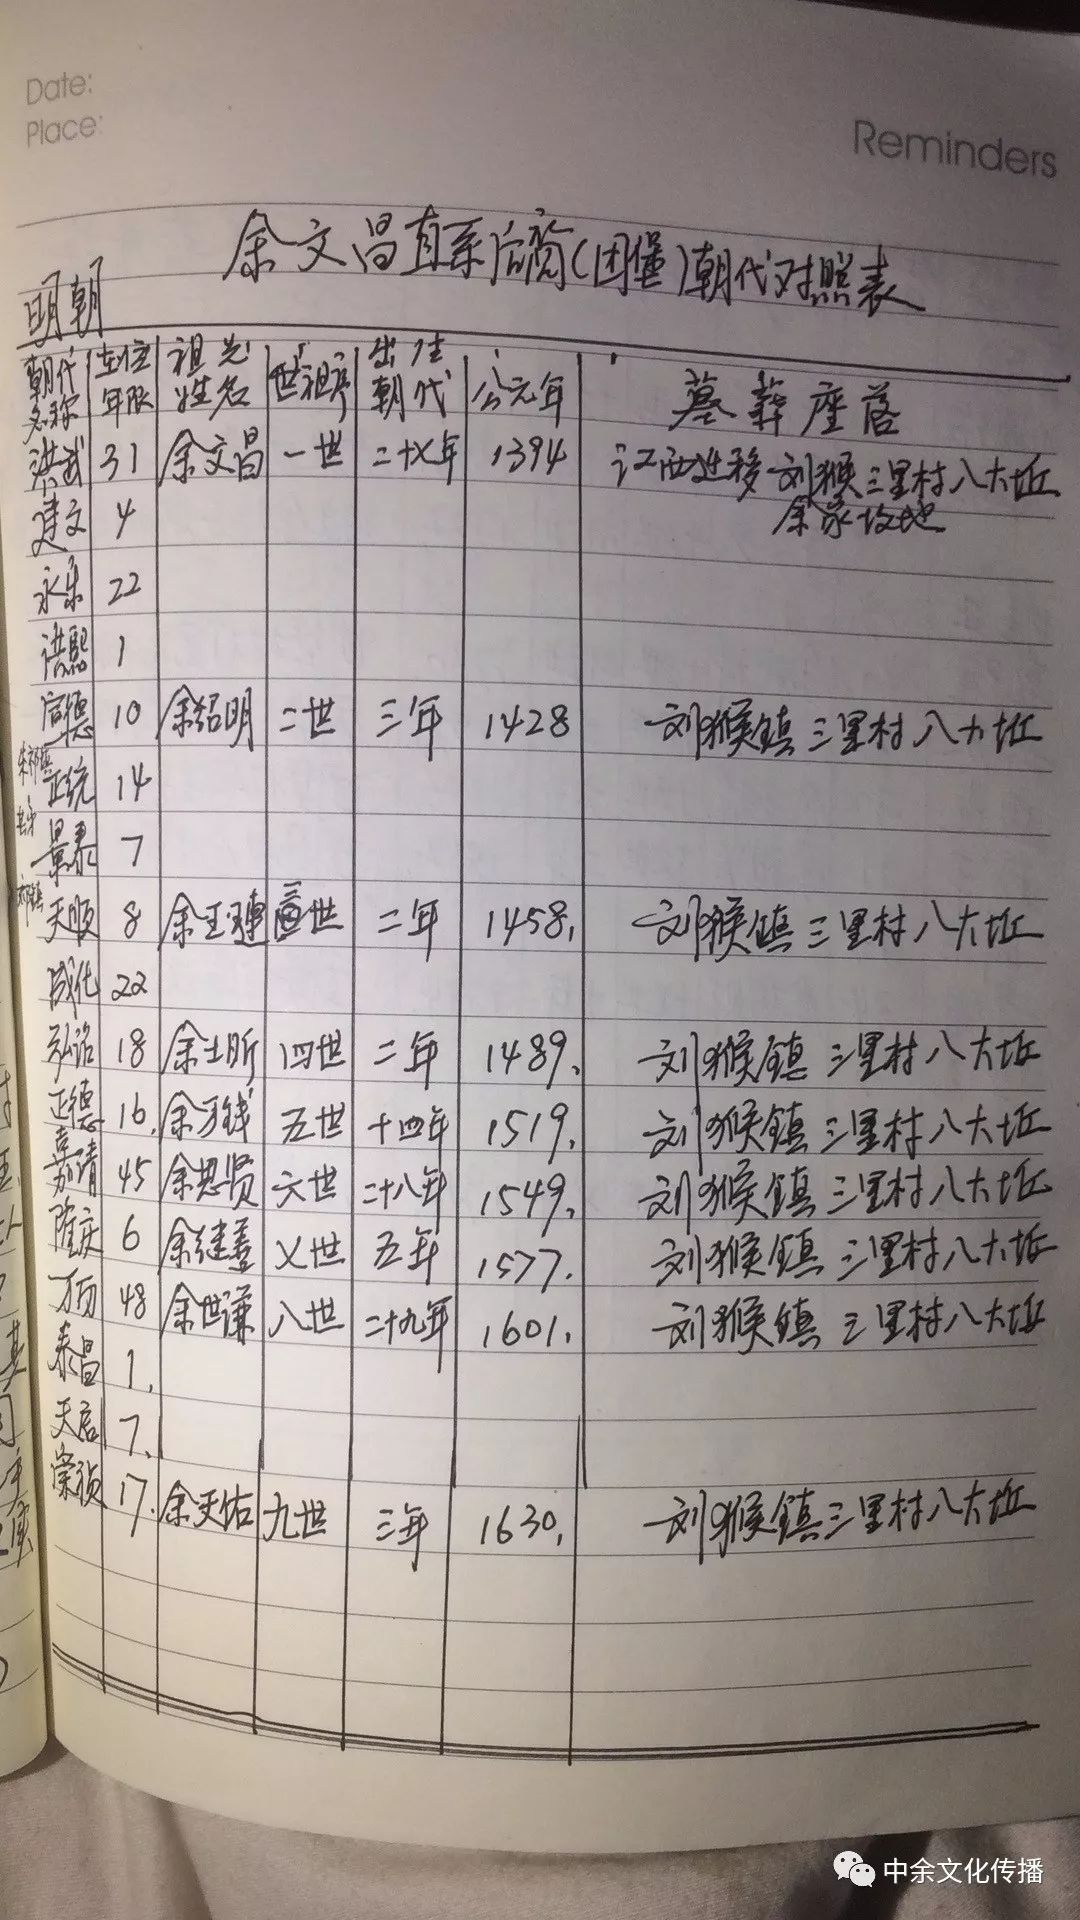 Date:
Place:
Reminders
余文昌直系后裔(团堡)朝代对照表
明朝
朝代名称 在位年限 祖先姓名 世祖序 出生朝代 公元年 墓葬座落
洪武 31 余文昌 一世 二十七年 1394 江西迁移 刘猴三里村八大坵
余家坟地
建文 4
永乐 22
洪熙 1
宣德 10 余绍明 二世 三年 1428 刘猴镇 三里村八大坵
正统 14
景泰 7
天顺 8 余玉琏 三世 二年 1458. 刘猴镇 三里村八大坵
成化 22
弘治 18 余士昕 四世 二年 1489. 刘猴镇 三里村八大坵
正德 16. 余万钱 五世 十四年 1519. 刘猴镇 三里村八大坵
嘉靖 45 余思贤 六世 二十八年 1549. 刘猴镇 三里村八大坵
隆庆 6 余继善 乂世 五年 1577. 刘猴镇 三里村八大坵
万历 48 余世谦 八世 二十九年 1601. 刘猴镇 三里村八大坵
泰昌 1.
天启 7.
崇祯 17. 余天佑 九世 三年 1630. 刘猴镇三里村八大坵
中余文化传播